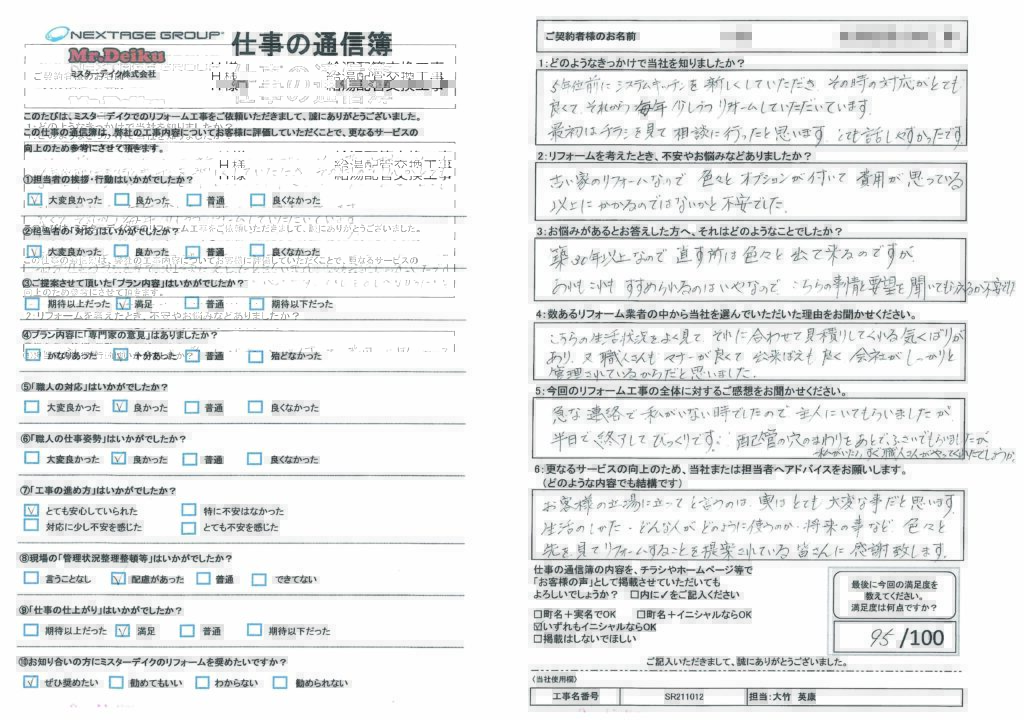 NEXTAGE GROUP
Mr.Deiku
ミスターデイク株式会社
仕事の通信簿
H様 給湯配管交換工事
このたびは、ミスターデイクでのリフォーム工事をご依頼いただきまして、誠にありがとうございました。
この仕事の通信簿は、弊社の工事内容についてお客様に評価していただくことで、更なるサービスの
向上のため参考にさせて頂きます。
①担当者の挨拶・行動はいかがでしたか?
☑大変良かった □良かった □普通 □良くなかった
②担当者の「対応」はいかがでしたか?
☑大変良かった □良かった □普通 □良くなかった
③ご提案させて頂いた「プラン内容」はいかがでしたか?
□期待以上だった ☑満足 □普通 □期待以下だった
④プラン内容に「専門家の意見」はありましたか?
□かなりあった ☑十分あった □普通 □殆どなかった
⑤「職人の対応」はいかがでしたか?
□大変良かった ☑良かった □普通 □良くなかった
⑥「職人の仕事姿勢」はいかがでしたか?
□大変良かった ☑良かった □普通 □良くなかった
⑦「工事の進め方」はいかがでしたか?
☑とても安心していられた □特に不安はなかった
□対応に少し不安を感じた □とても不安を感じた
⑧現場の「管理状況整理整頓等」はいかがでしたか?
□言うことなし ☑配慮があった □普通 □できてない
⑨「仕事の仕上がり」はいかがでしたか?
□期待以上だった ☑満足 □普通 □期待以下だった
⑩お知り合いの方にミスターデイクのリフォームを奨めたいですか?
☑ぜひ奨めたい □勧めてもいい □わからない □勧められない
ご契約者様のお名前
1:どのようなきっかけで当社を知りましたか?
5年位前にシステムキッチンを新しくしていただき、その時の対応がとても
良くて、それから毎年少しづつリフォームしていただいています。
最初はチラシを見て相談に行ったと思います。とても話しやすかったです。
2:リフォームを考えたとき、不安やお悩みなどありましたか?
古い家のリフォームなので色々とオプションが付いて費用が思っている
以上にかかるのではないかと不安でした。
3:お悩みがあるとお答えした方へ、それはどのようなことでしたか?
築30年以上なので直す所は色々と出て来るのですが
あれもこれもすすめられるのはいやなので、こちらの事情と要望を聞いてもらえるか不安でした
4:数あるリフォーム業者の中から当社を選んでいただいた理由をお聞かせください。
こちらの生活状況をよく見て それに合わせて見積りしてくれる気くばりが
あり、又、職人さんもマナーが良くて 出来ばえも良く 会社がしっかりと
管理されているからだと思いました。
5:今回のリフォーム工事の全体に対するご感想をお聞かせください。
急な連絡で私がいない時でしたので主人にいてもらいましたが、
半日で終了してびっくりです。配管の穴のまわりをあとで、ふさいでもらいましたが
私がいたら、すぐ職人さんがやってくれたでしょうか。
6:更なるサービスの向上のため、当社または担当者へアドバイスをお願いします。
(どのような内容でも結構です)
お客様の立場に立ってと言うのは、実はとても大変な事だと思います。
生活のしかた・どんな人がどのように使うのか・将来の事など、色々と
先を見てリフォームすることを提案されている皆さんに感謝致します。
仕事の通信簿の内容を、チラシやホームページ等で
「お客様の声」として掲載させていただいても
よろしいでしょうか? □内に✓をご記入ください
□町名+実名でOK □町名+イニシャルならOK
☑いずれもイニシャルならOK
□掲載はしないでほしい
最後に今回の満足度を
教えてください。
満足度は何点ですか?
95/100
ご記入いただきまして、誠にありがとうございました。
(当社使用欄)
工事名番号 SR211012 担当:大竹 英康